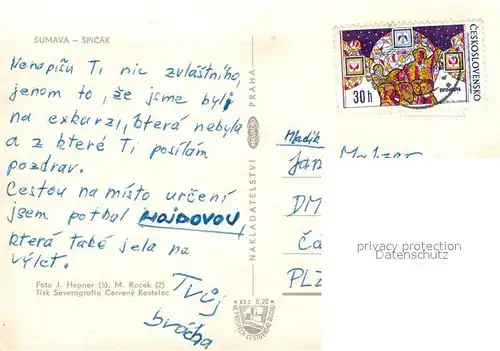 ŠUMAVA - ŠPIČÁK
Nenapíšu Ti nic zvláštního,
jenom to, že jsme byli
na exkurzi, která nebyla
a z které Ti posílám
pozdrav.
Cestou na místo určení
jsem potkal HOJDOVOU
která také jela na
výlet.
Tvůj
brácha
Foto J. Hepner (3), M. Racek (2)
Tisk Severografia Červený Kostelec
NAKLADATELSTVÍ
PRAHA
Kčs 0,20
ČESKOSLOVENSKO
30h
DM
PLZ
privacy protection
Datenschutz